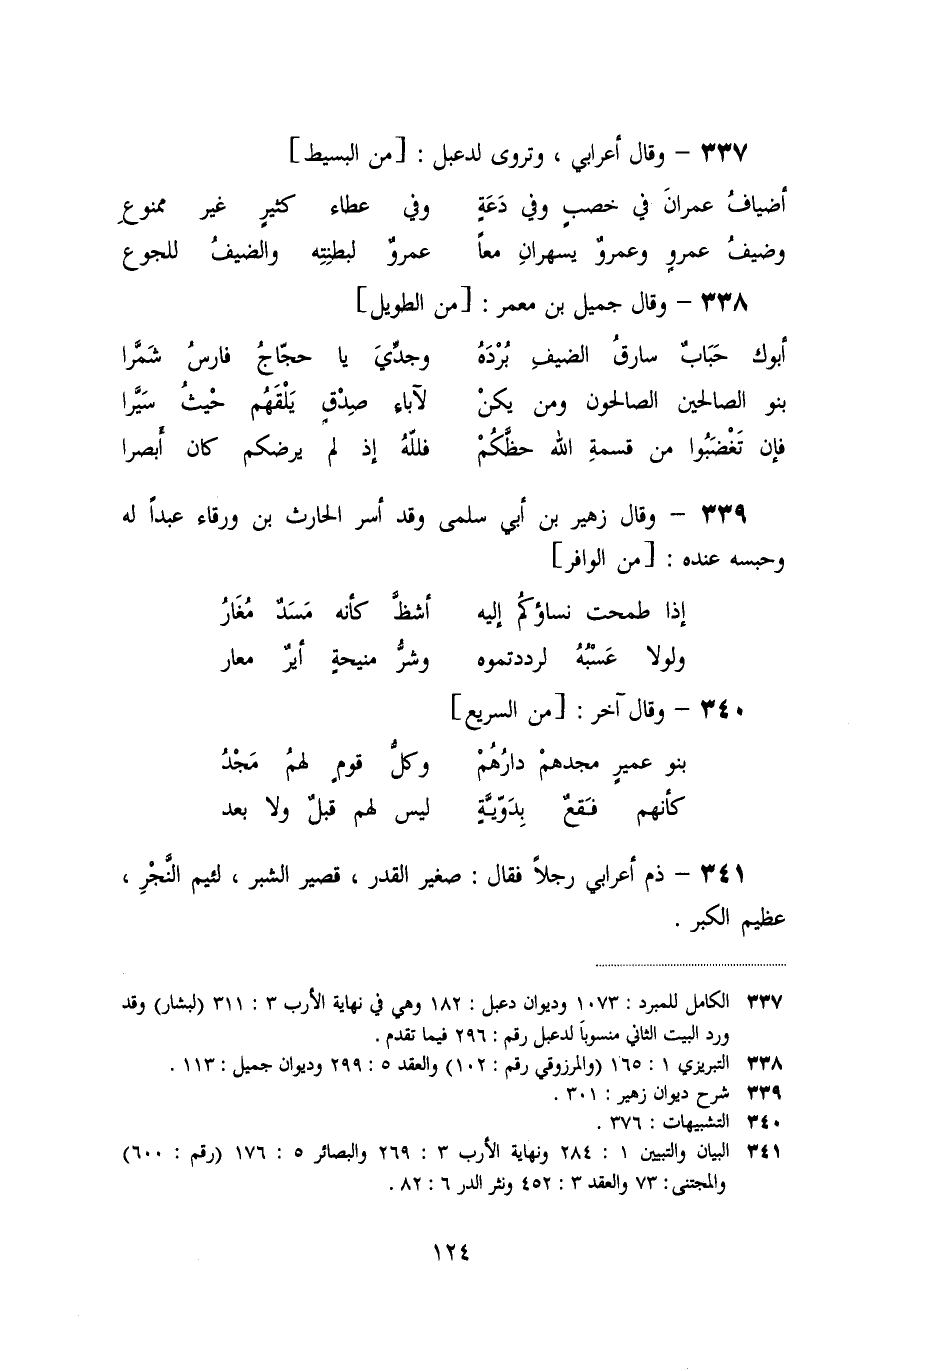 ٣٣٧ – وقال أعرابي ، وتروى لدعبل : [من البسيط]
أضيافُ عمرانَ في خصبٍ وفي دَعَةٍ وفي عطاء كثيرٍ غير ممنوعِ
وضيفُ عمروٍ وعمروٌ يسهرانِ معاً عمروٌ لبطنِتِه والضيفُ للجوع
٣٣٨ – وقال جميل بن معمر : [من الطويل]
أبوك حَبَابٌ سارقُ الضيفِ بُرْدَهُ وجدِّيَ يا حجّاجُ فارسُ شَمَّرا
بنو الصالحين الصالحون ومن يكنْ لآباءِ صِدْقٍ يَلْقَهُم حْيثُ سَيَّرا
فإن تَغْضَبُوا من قسمةِ الله حظَّكُمْ فللّهُ إذ لم يرضكم كان أبصرا
٣٣٩ – وقال زهير بن أبي سلمى وقد أسر الحارث بن ورقاء عبداً له
وحبسه عنده : [من الوافر]
إذا طمحت نساؤكُم إليه أشظَّ كأنه مَسَدٌ مُغَارُ
ولولا عَسْبُهُ لرددتموه وشرُّ منيحةٍ أيرٌ معار
٣٤٠ – وقال آخر : [من السريع]
بنو عميرٍ مجدهمْ دارُهُمْ وكلُّ قومٍ لهمُ مَجْدُ
كأنهم فَقعٌ بِدَوّيَّةٍ ليس لهم قبلٌ ولا بعد
٣٤١ – ذم أعرابي رجلاً فقال : صغير القدر ، قصير الشبر ، لئيم النَّجْرِ ،
عظيم الكبر .
٣٣٧ الكامل للمبرد : ١٠٧٣ وديوان دعبل : ١٨٢ وهي في نهاية الأرب ٣ : ٣١١ (لبشار) وقد
ورد البيت الثاني منسوباً لدعبل رقم : ٢٩٦ فيما تقدم .
٣٣٨ التبريزي ١ : ١٦٥ (والمرزوقي رقم : ١٠٢) والعقد ٥ : ٢٩٩ وديوان جميل : ١١٣ .
٣٣٩ شرح ديوان زهير : ٣٠١ .
٣٤٠ التشبيهات : ٣٧٦ .
٣٤١ البيان والتبيين ١ : ٢٨٤ ونهاية الأرب ٣ : ٢٦٩ والبصائر ٥ : ١٧٦ (رقم : ٦٠٠)
والمجتنى : ٧٣ والعقد ٣ : ٤٥٢ ونثر الدر ٦ : ٨٢ .
١٢٤